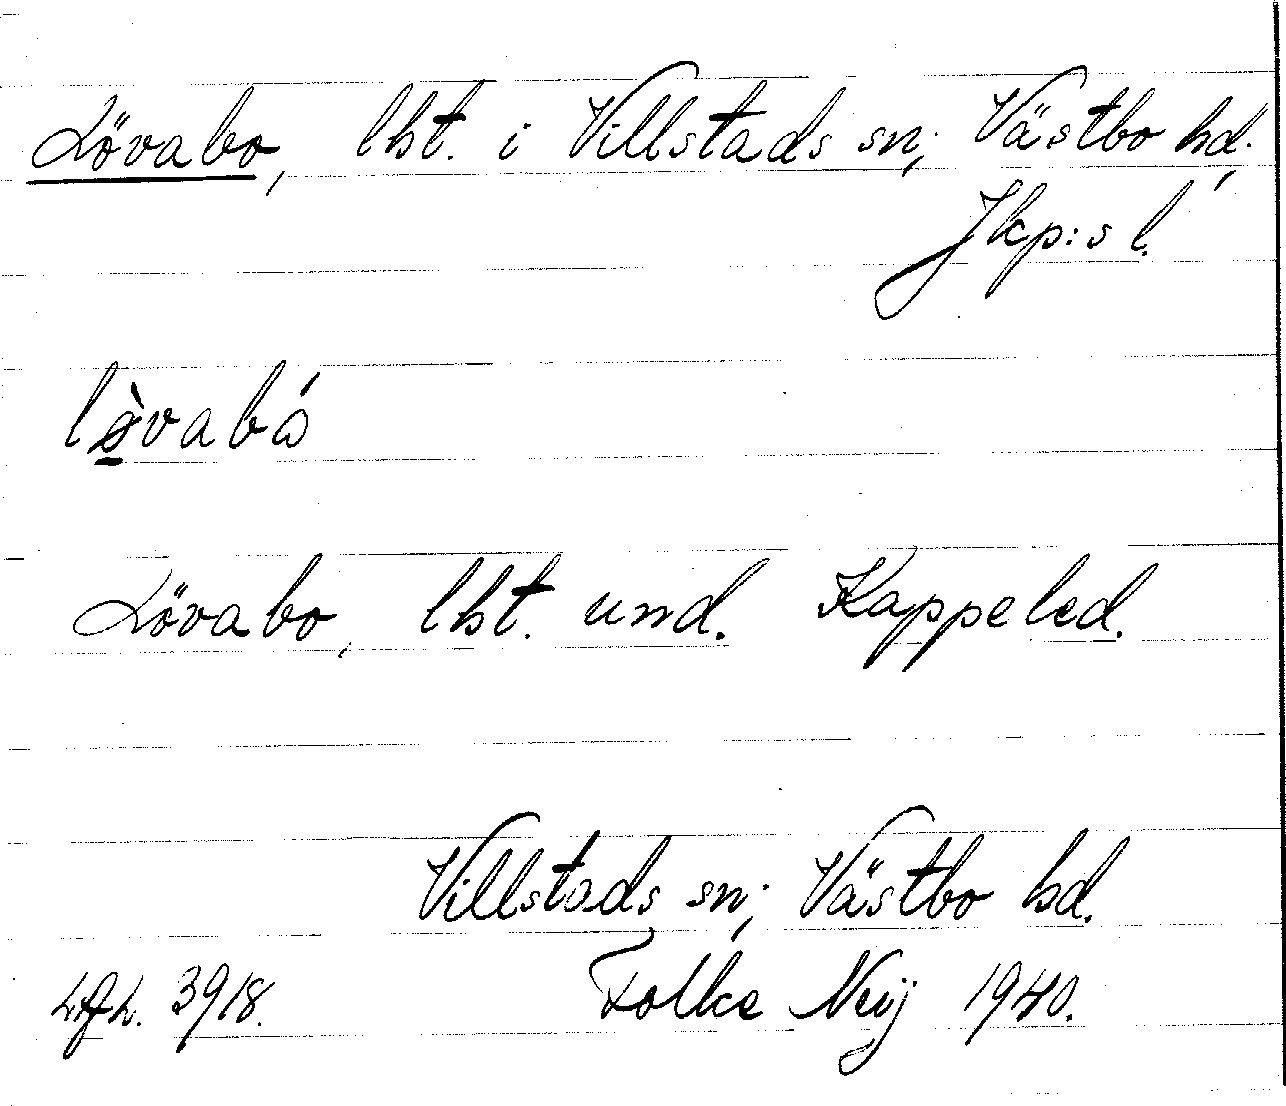 Lövabo, lht. i Villstads sn., Västbo hd.,
Jkp:s l.
Lövabo, lht. und. Kappeled.
Villstads sn., Västbo hd.
3918. Folke Neij 1940.